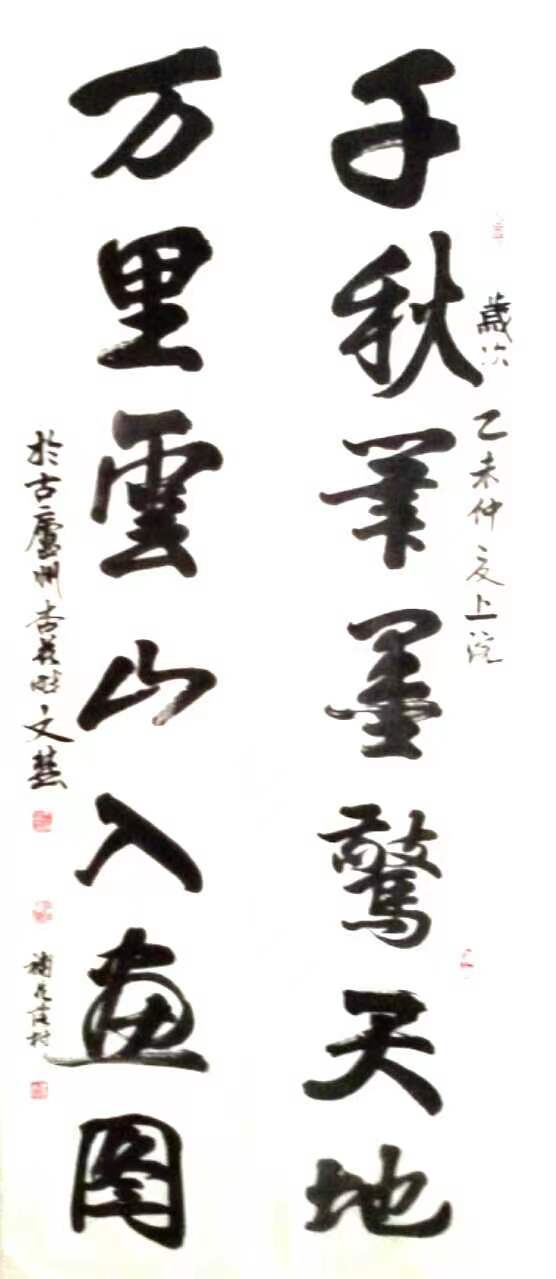 千秋筆墨驚天地
歲次
乙未仲夏上浣
万里雲山入画图
於古廬州杏花畔文慧